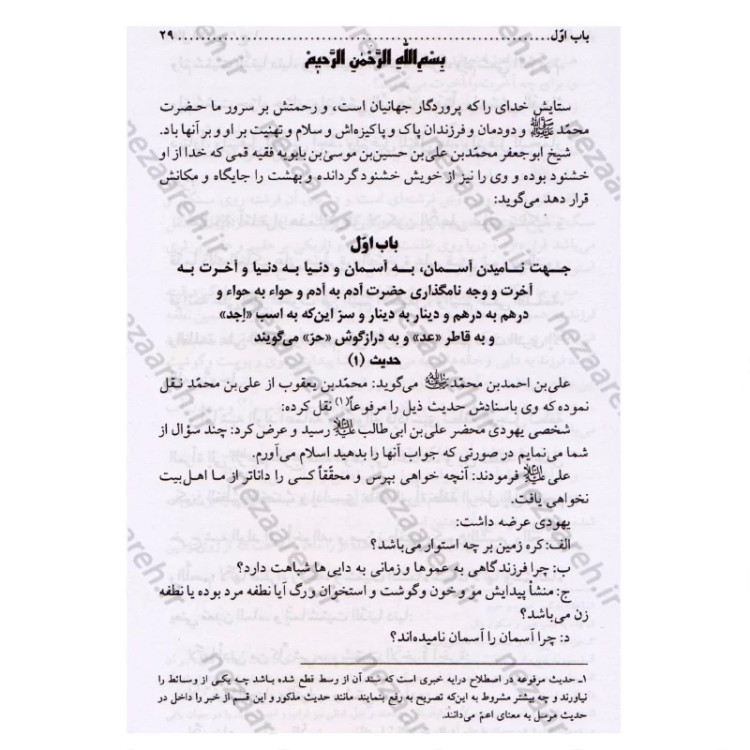 باب اوّل.................................................................۲۹
بِسْمِ اللهِ الرَّحْمٰنِ الرَّحيمِ
ستایش خدای را که پروردگار جهانیان است، و رحمتش بر سرور ما حضرت
محمّد ﷺ و دودمان و فرزندان پاک و پاکیزه‌اش و سلام و تهنیت بر او و بر آنها باد.
شیخ ابوجعفر محمّدبن علی‌بن حسین‌بن موسی‌بن بابویه فقیه قمی که خدا از او
خشنود بوده و وی را نیز از خویش خشنود گردانده و بهشت را جایگاه و مکانش
قرار دهد می‌گوید:
باب اوّل
جـهت نـامیدن آسـمان، بـه آسـمان و دنـیا بـه دنـیا و آخـرت بـه
آخرت و وجه نامگذاری حضرت آدم به آدم و حواء به حواء و
درهم به درهم و دینار به دینار و سرّ این‌که به اسب «اِجد»
و به قاطر «عد» و به درازگوش «حرّ» می‌گویند
حدیث (۱)
علی‌بن احمدبن محمّد می‌گوید: محمّدبن یعقوب از علی‌بن محمّد نـقل
نموده که وی باسنادش حدیث ذیل را مرفوعاً(۱) نقل کرده:
شخصی یهودی محضر علی‌بن ابی‌طالب رسید و عرض کرد: چند سؤال از
شما می‌نمایم در صورتی که جواب آنها را بدهید اسلام می‌آورم.
علی فرمودند: آنچه خواهی بپرس و محقّقاً کسی را داناتر از مـا اهـل‌بیت
نخواهی یافت.
یهودی عرضه داشت:
الف: کره زمین بر چه استوار می‌باشد؟
ب: چرا فرزند گاهی به عموها و زمانی به دایی‌ها شباهت دارد؟
ج: منشأ پیدایش مو و خون وگوشت و استخوان ورگ آیا نطفه مرد بوده یا نطفه
زن می‌باشد؟
د: چرا آسمان را آسمان نامیده‌اند؟
۱ـ حدیث مرفوعه در اصطلاح درایه خبری است که سند آن از وسط قطع شده باشد چـه یکـی از وسـائط را
نیاورند و چه بیشتر مشروط به این‌که تصریح به رفع بنمایند مانند حدیث مذکور و این قسم از خبر را داخل در
حدیث مرسل به معنای اعمّ می‌دانند.
nezaareh.ir